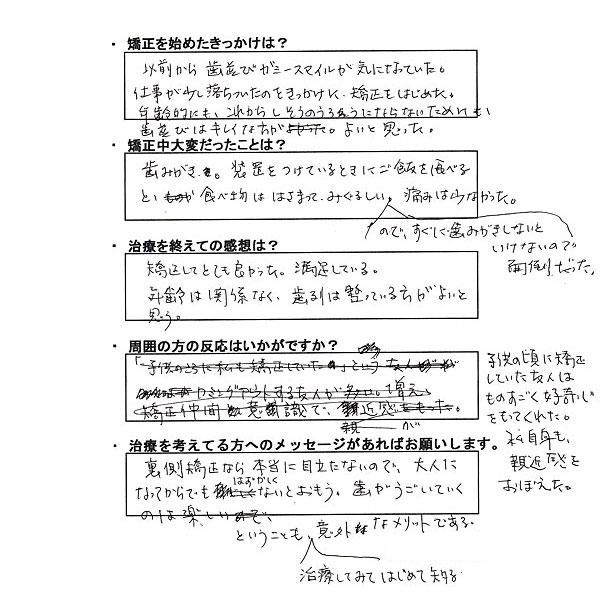 ・ 矯正を始めたきっかけは？
以前から 歯並びガミースマイルが 気になっていた。
仕事が少し落ちついたのをきっかけに、矯正をはじめた。
年齢的にも、これから しそうのうろうにならないためにも、
歯並びはキレイな方が よいと思った。
・ 矯正中大変だったことは？
歯みがき。装置をつけているときにご飯を食べる
と、食べ物が はさまって、みぐるしい。痛みは少なかった。
ので、すぐに歯みがきしないと
いけないので
面倒だった。
・ 治療を終えての感想は？
矯正してとても良かった。満足している。
年齢は関係なく、歯列は整っている方がよいと
思う。
・ 周囲の方の反応はいかがですか？
「子供のころに私も矯正していた」という 友人
カミングアウトする友人が 増え
矯正仲間 意識で、親近感
親 が
子供の頃に矯正
していた友人は
ものすごく好奇心
をもってくれた。
私自身も、
親近感を
おぼえた。
・ 治療を考えてる方へのメッセージがあればお願いします。
裏側矯正なら 本当に目立たないので、大人に
なってからでも はずかしくないとおもう。歯がうごいていく
のは楽しい
ということも、意外なメリットである。
治療してみて はじめて知る